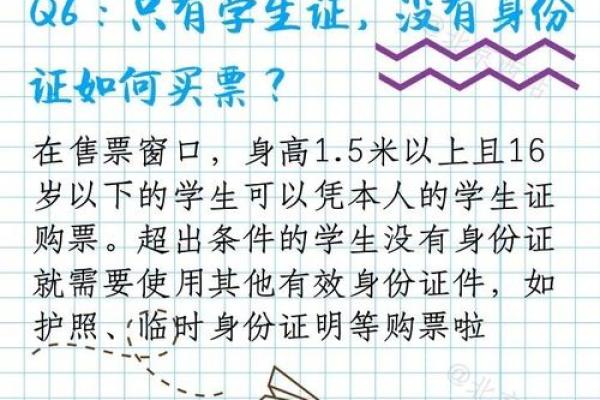 Q6：只有学生证，没有身份
证如何买票？
在售票窗口，身高1.5米以上且16
岁以下的学生可以凭本人的学生证
购票。超出条件的学生没有身份证
就需要使用其他有效身份证件，如
护照、临时身份证明等购票啦